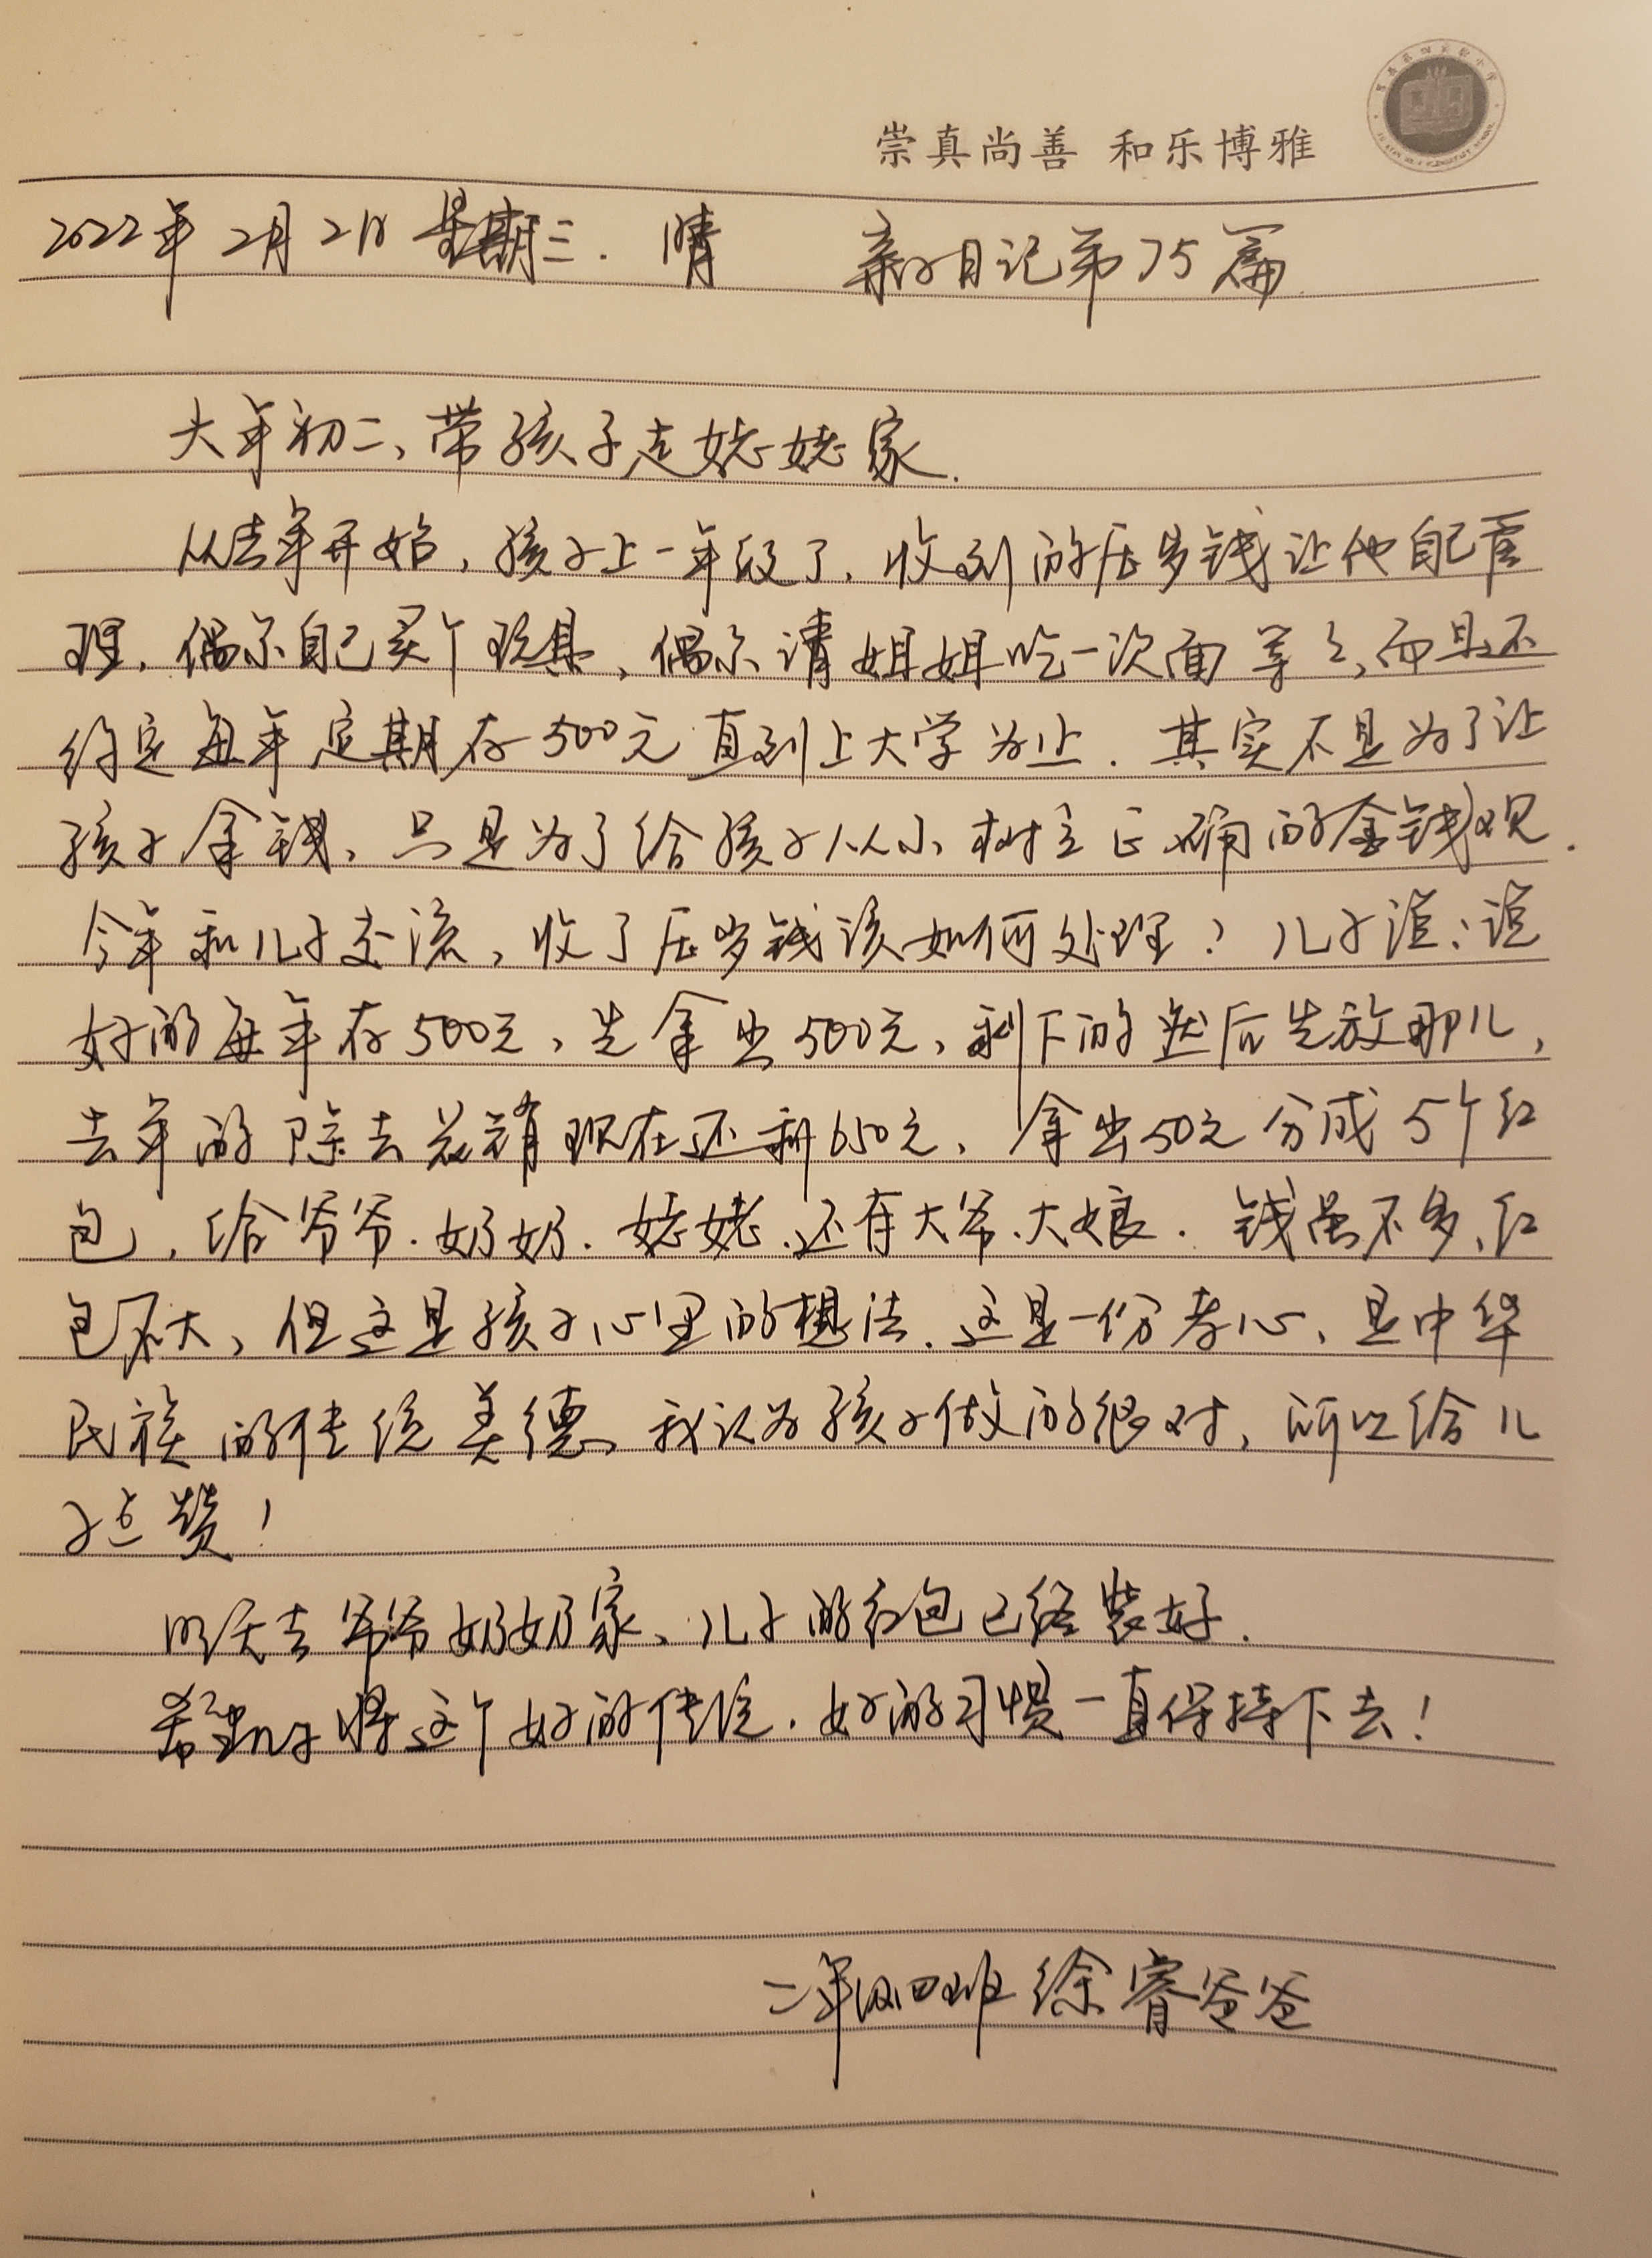 崇真尚善 和乐博雅
2022年2月2日 星期三. 晴 亲子日记第75篇
大年初二、带孩子走姥姥家.
从去年开始，孩子上一年级了，收到的压岁钱让他自己管
理，偶尔自己买个玩具，偶尔请姐姐吃一次面等等，而且还
约定每年定期存500元直到上大学为止. 其实不是为了让
孩子拿钱、只是为了给孩子从小树立正确的金钱观.
今年和儿子交流，收了压岁钱该如何处理？儿子说：说
好的每年存500元，先拿出500元，剩下的然后先放那儿，
去年的除去花销现在还剩650元、拿出50元分成5个红
包，给爷爷.奶奶.姥姥.还有大爷、大娘. 钱虽不多、红
包不大，但这是孩子心里的想法. 这是一份孝心、是中华
民族的传统美德、我认为孩子做的很对，所以给儿
子点赞！
明天去爷爷奶奶家、儿子的红包已经装好.
希望儿子将这个好的传统.好的习惯一直保持下去！
二年级四班 徐睿爸爸